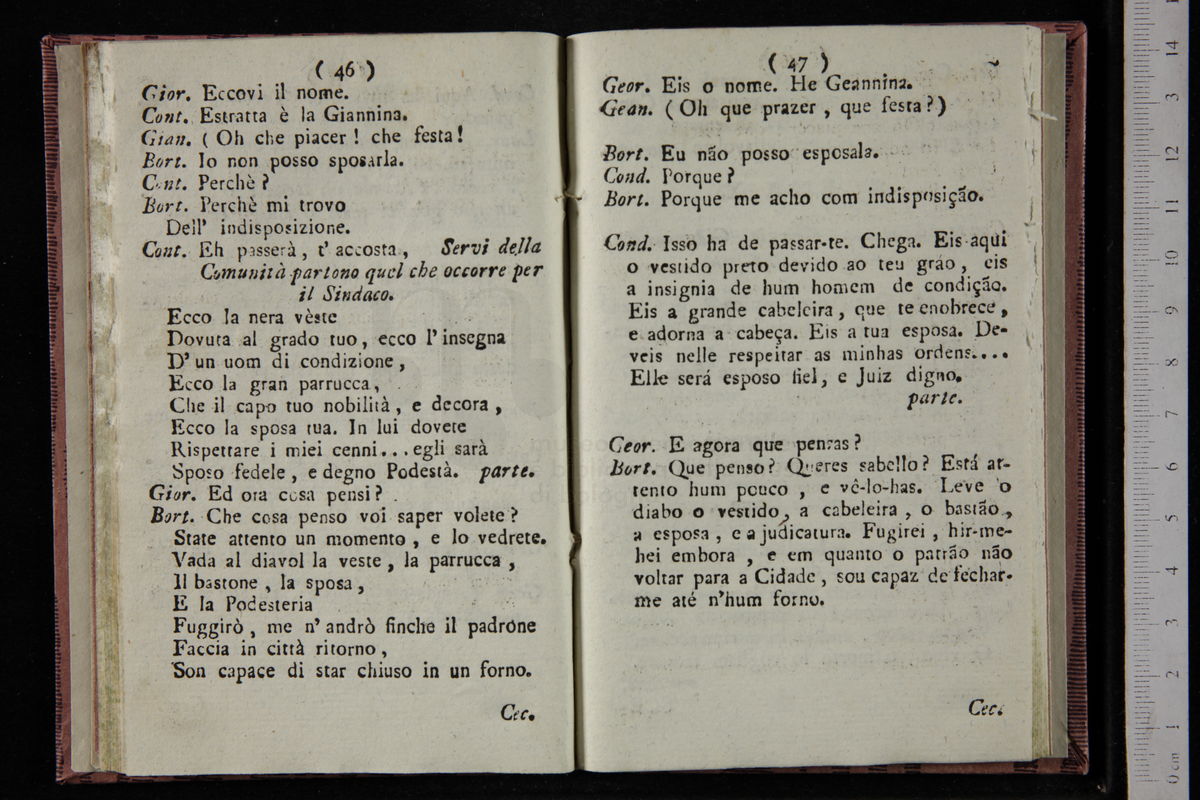 ( 46 )
Gior. Eccovi il nome.
Cont. Estratta è la Giannina.
Gian. ( Oh che piacer ! che festa !
Bort. Io non posso sposarla.
Cont. Perchè ?
Bort. Perchè mi trovo
Dell' indisposizione.
Cont. Eh passerà , t' accosta , Servi della
Comunità partono quel che occorre per
il Sindaco.
Ecco la nera vèste
Dovuta al grado tuo , ecco l' insegna
D' un uom di condizione ,
Ecco la gran parrucca ,
Che il capo tuo nobilità , e decora ,
Ecco la sposa tua. In lui dovete
Rispettare i miei cenni... egli sarà
Sposo fedele , e degno Podestà. parte.
Gior. Ed ora cosa pensi ?
Bort. Che cosa penso voi saper volete ?
State attento un momento , e lo vedrete.
Vada al diavol la veste , la parrucca ,
Il bastone , la sposa ,
E la Podesteria
Fuggirò , me n' andrò finche il padrone
Faccia in città ritorno ,
Son capace di star chiuso in un forno.
Cec.
( 47 )
Geor. Eis o nome. He Geannina.
Gean. ( Oh que prazer , que festa ? )
Bort. Eu não posso esposala.
Cond. Porque ?
Bort. Porque me acho com indisposição.
Cond. Isso ha de passar-te. Chega. Eis aqui
o vestido preto devido ao teu gráo , eis
a insignia de hum homem de condição.
Eis a grande cabeleira , que te enobrece ,
e adorna a cabeça. Eis a tua esposa. De-
veis nelle respeitar as minhas ordens....
Elle será esposo fiel , e Juiz digno.
parte.
Geor. E agora que pensas ?
Bort. Que penso ? Queres sabello ? Está at-
tento hum pouco , e vê-lo-has. Leve o
diabo o vestido , a cabeleira , o bastão ,
a esposa , e a judicatura. Fugirei , hir-me-
hei embora , e em quanto o patrão não
voltar para a Cidade , sou capaz de fechar-
me até n'hum forno.
Cec.
14
13
12
11
10
9
8
7
6
5
4
3
2
1
0 cm